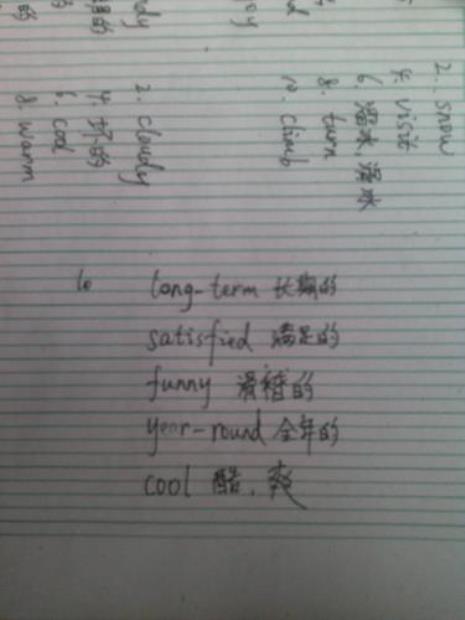 2. snow
4. visit
6. 溜冰，滑冰
8. turn
10. climb
2. cloudy
4. 坏的
6. cool
8. warm
10
long-term 长期的
satisfied 满足的
funny 滑稽的
year-round 全年的
cool 酷，爽